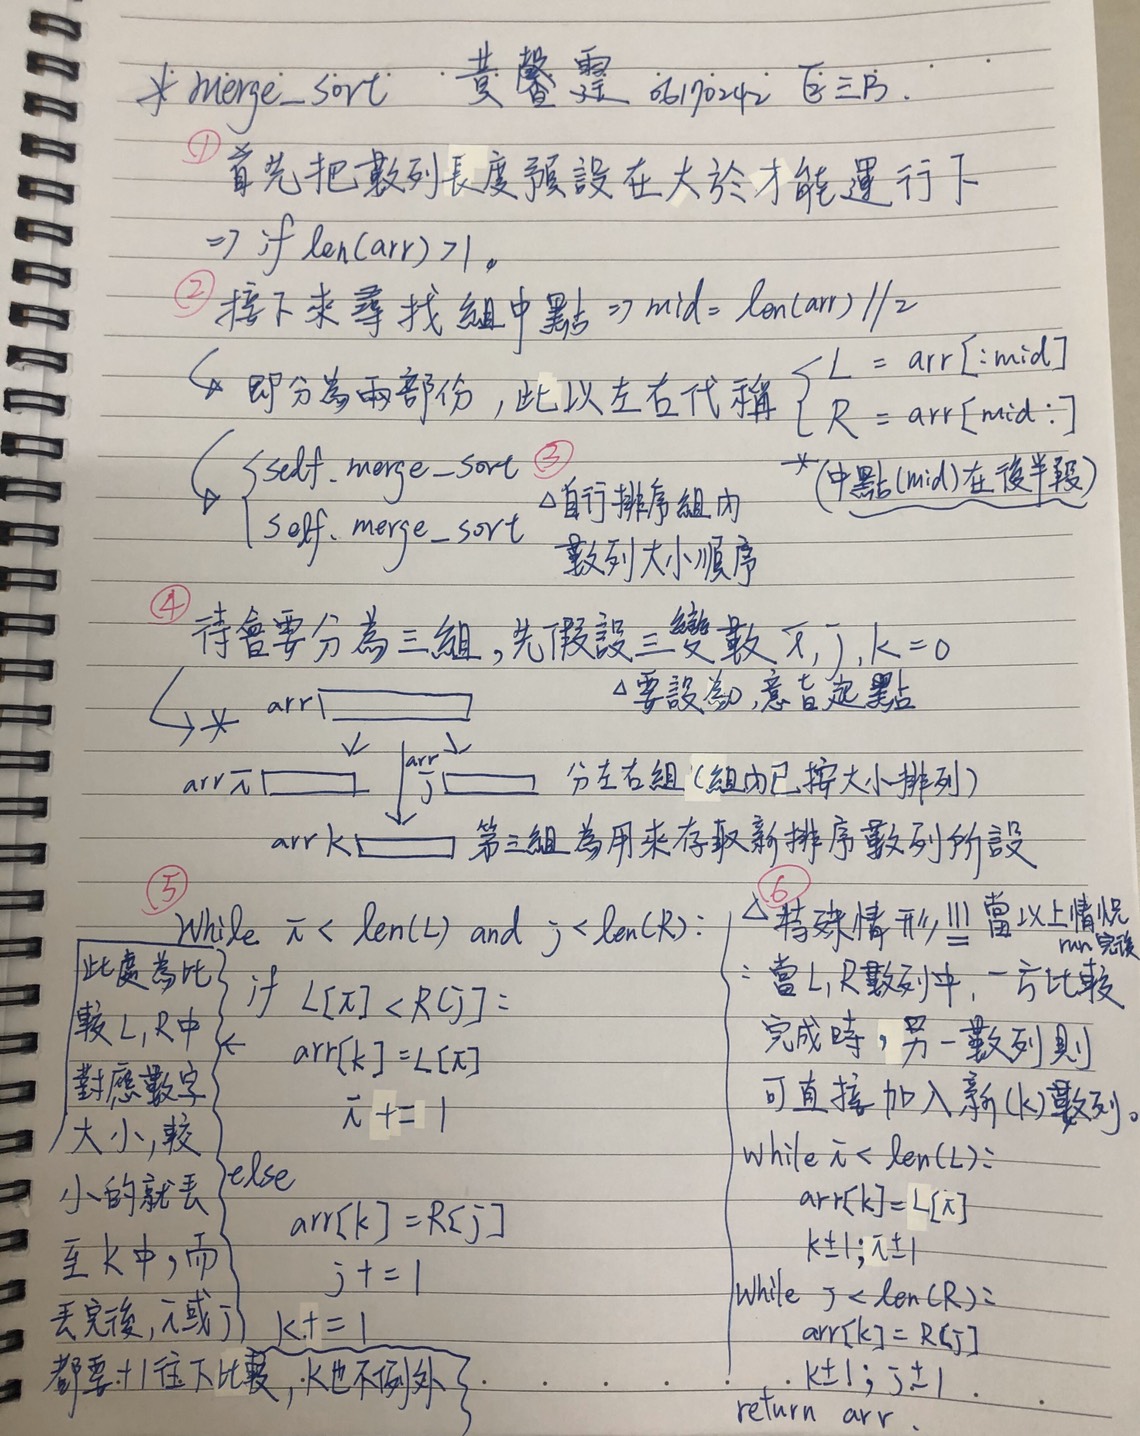 * merge_sort 黃馨霆 06170242 巨三B.
① 首先把數列長度預設在大於才能運行下
=> if len(arr) >1。
② 接下來尋找組中點 => mid = len(arr)//2
即分為兩部份,此以左右代稱
L = arr[:mid]
R = arr[mid:]
*(中點(mid)在後半段)
self.merge_sort
self.merge_sort
③ △自行排序組內
數列大小順序
④ 待會要分為三組,先假設三變數 i,j,k=0
△要設為0,意旨起點
* arr
arr i
arr j
分左右組(組內已按大小排列)
arr k 第三組為用來存取新排序數列所設
⑤ While i < len(L) and j < len(R):
if L[i] < R[j]:
arr[k] = L[i]
i += 1
else
arr[k] = R[j]
j += 1
k += 1
此處為比
較L,R中
對應數字
大小,較
小的就丟
至k中,而
丟完後,i或j
都要+1往下比較,k也不例外
⑥ △特殊情形!!! 當以上情況
run完後
: 當L,R數列中,一方比較
完成時,另一數列則
可直接加入新(k)數列。
While i < len(L):
arr[k] = L[i]
k±1; i±1
While j < len(R):
arr[k] = R[j]
k±1; j±1
return arr.